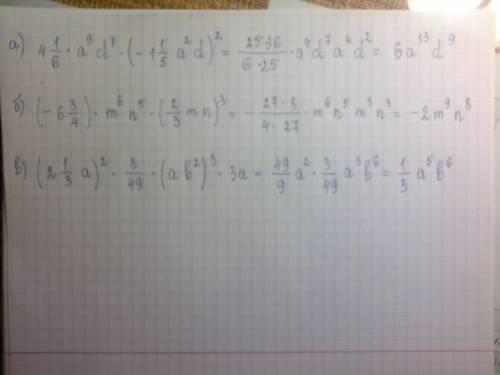 а) 4 1/6 · a⁹ d⁷ · (-1 1/5 a² d)² = 25·36/6·25 · a⁹ d⁷ a⁴ d² = 6a¹³ d⁹
б) (-6 3/4) · m⁶ n⁵ · (2/3 m n)³ = - 27·8/4·27 · m⁶ n⁵ m³ n³ = -2m⁹ n⁸
в) (2 1/3 a)² · 3/49 · (a b²)³ · 3a = 49/9 a² · 3/49 a³ b⁶ = 1/3 a⁵ b⁶